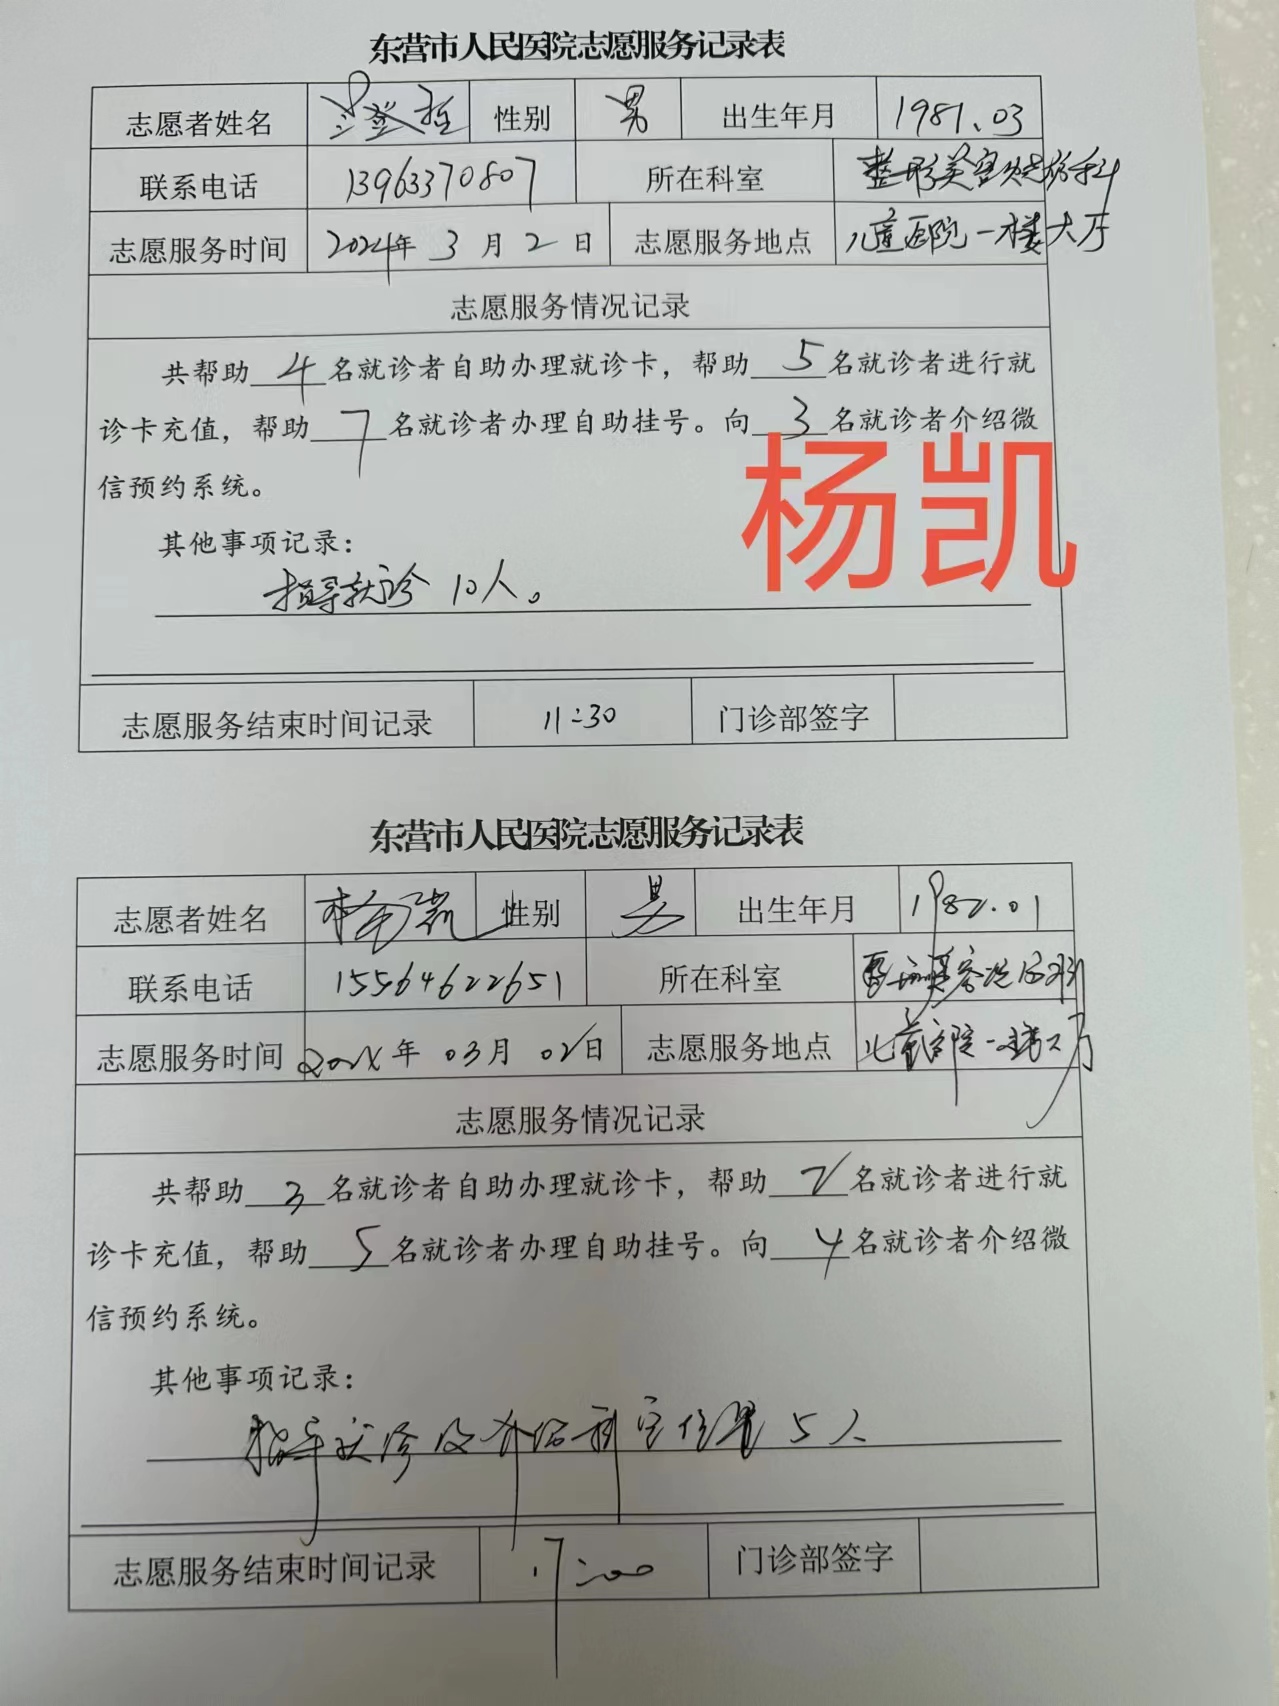 东营市人民医院志愿服务记录表
志愿者姓名 性别 男 出生年月 1981.03
联系电话 13963370807 所在科室 整形美容烧伤科
志愿服务时间 2024年 3月 2日 志愿服务地点 儿童医院一楼大厅
志愿服务情况记录
共帮助 4 名就诊者自助办理就诊卡，帮助 5 名就诊者进行就
诊卡充值，帮助 7 名就诊者办理自助挂号。向 3 名就诊者介绍微
信预约系统。
杨凯
其他事项记录：
指导就诊 10人。
志愿服务结束时间记录 11:30 门诊部签字
东营市人民医院志愿服务记录表
志愿者姓名 性别 男 出生年月 1982.01
联系电话 15564622651 所在科室
志愿服务时间 2024年 03月 02日 志愿服务地点 儿童医院一楼大厅
志愿服务情况记录
共帮助 3 名就诊者自助办理就诊卡，帮助 2 名就诊者进行就
诊卡充值，帮助 5 名就诊者办理自助挂号。向 4 名就诊者介绍微
信预约系统。
其他事项记录：
指导就诊及介绍科室位置 5人
志愿服务结束时间记录 17:00 门诊部签字